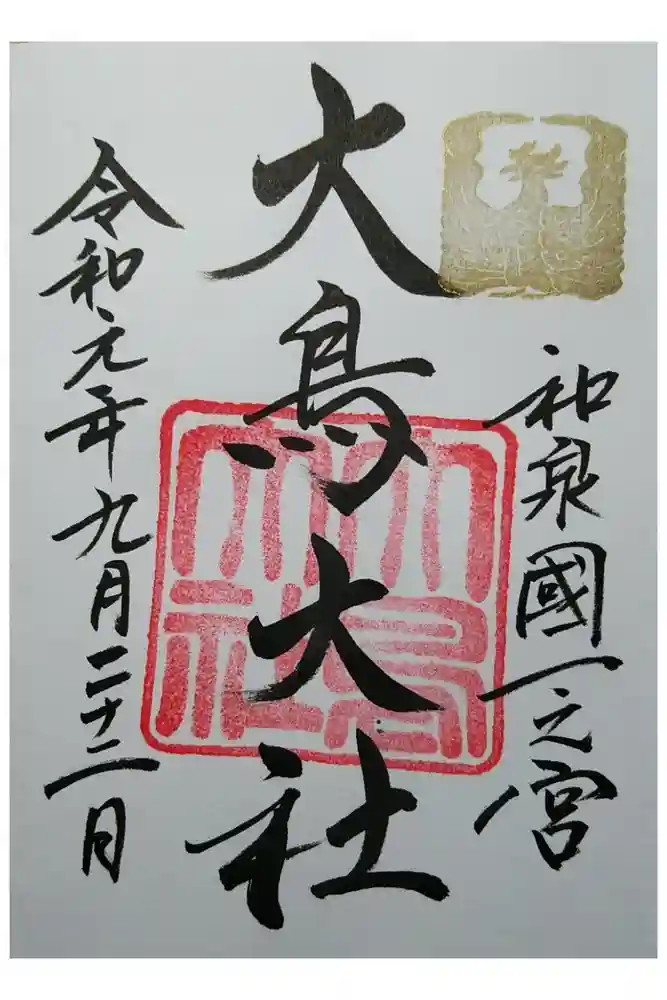 和泉國一之宮
大鳥大社
令和元年九月二十二日
大鳥大社